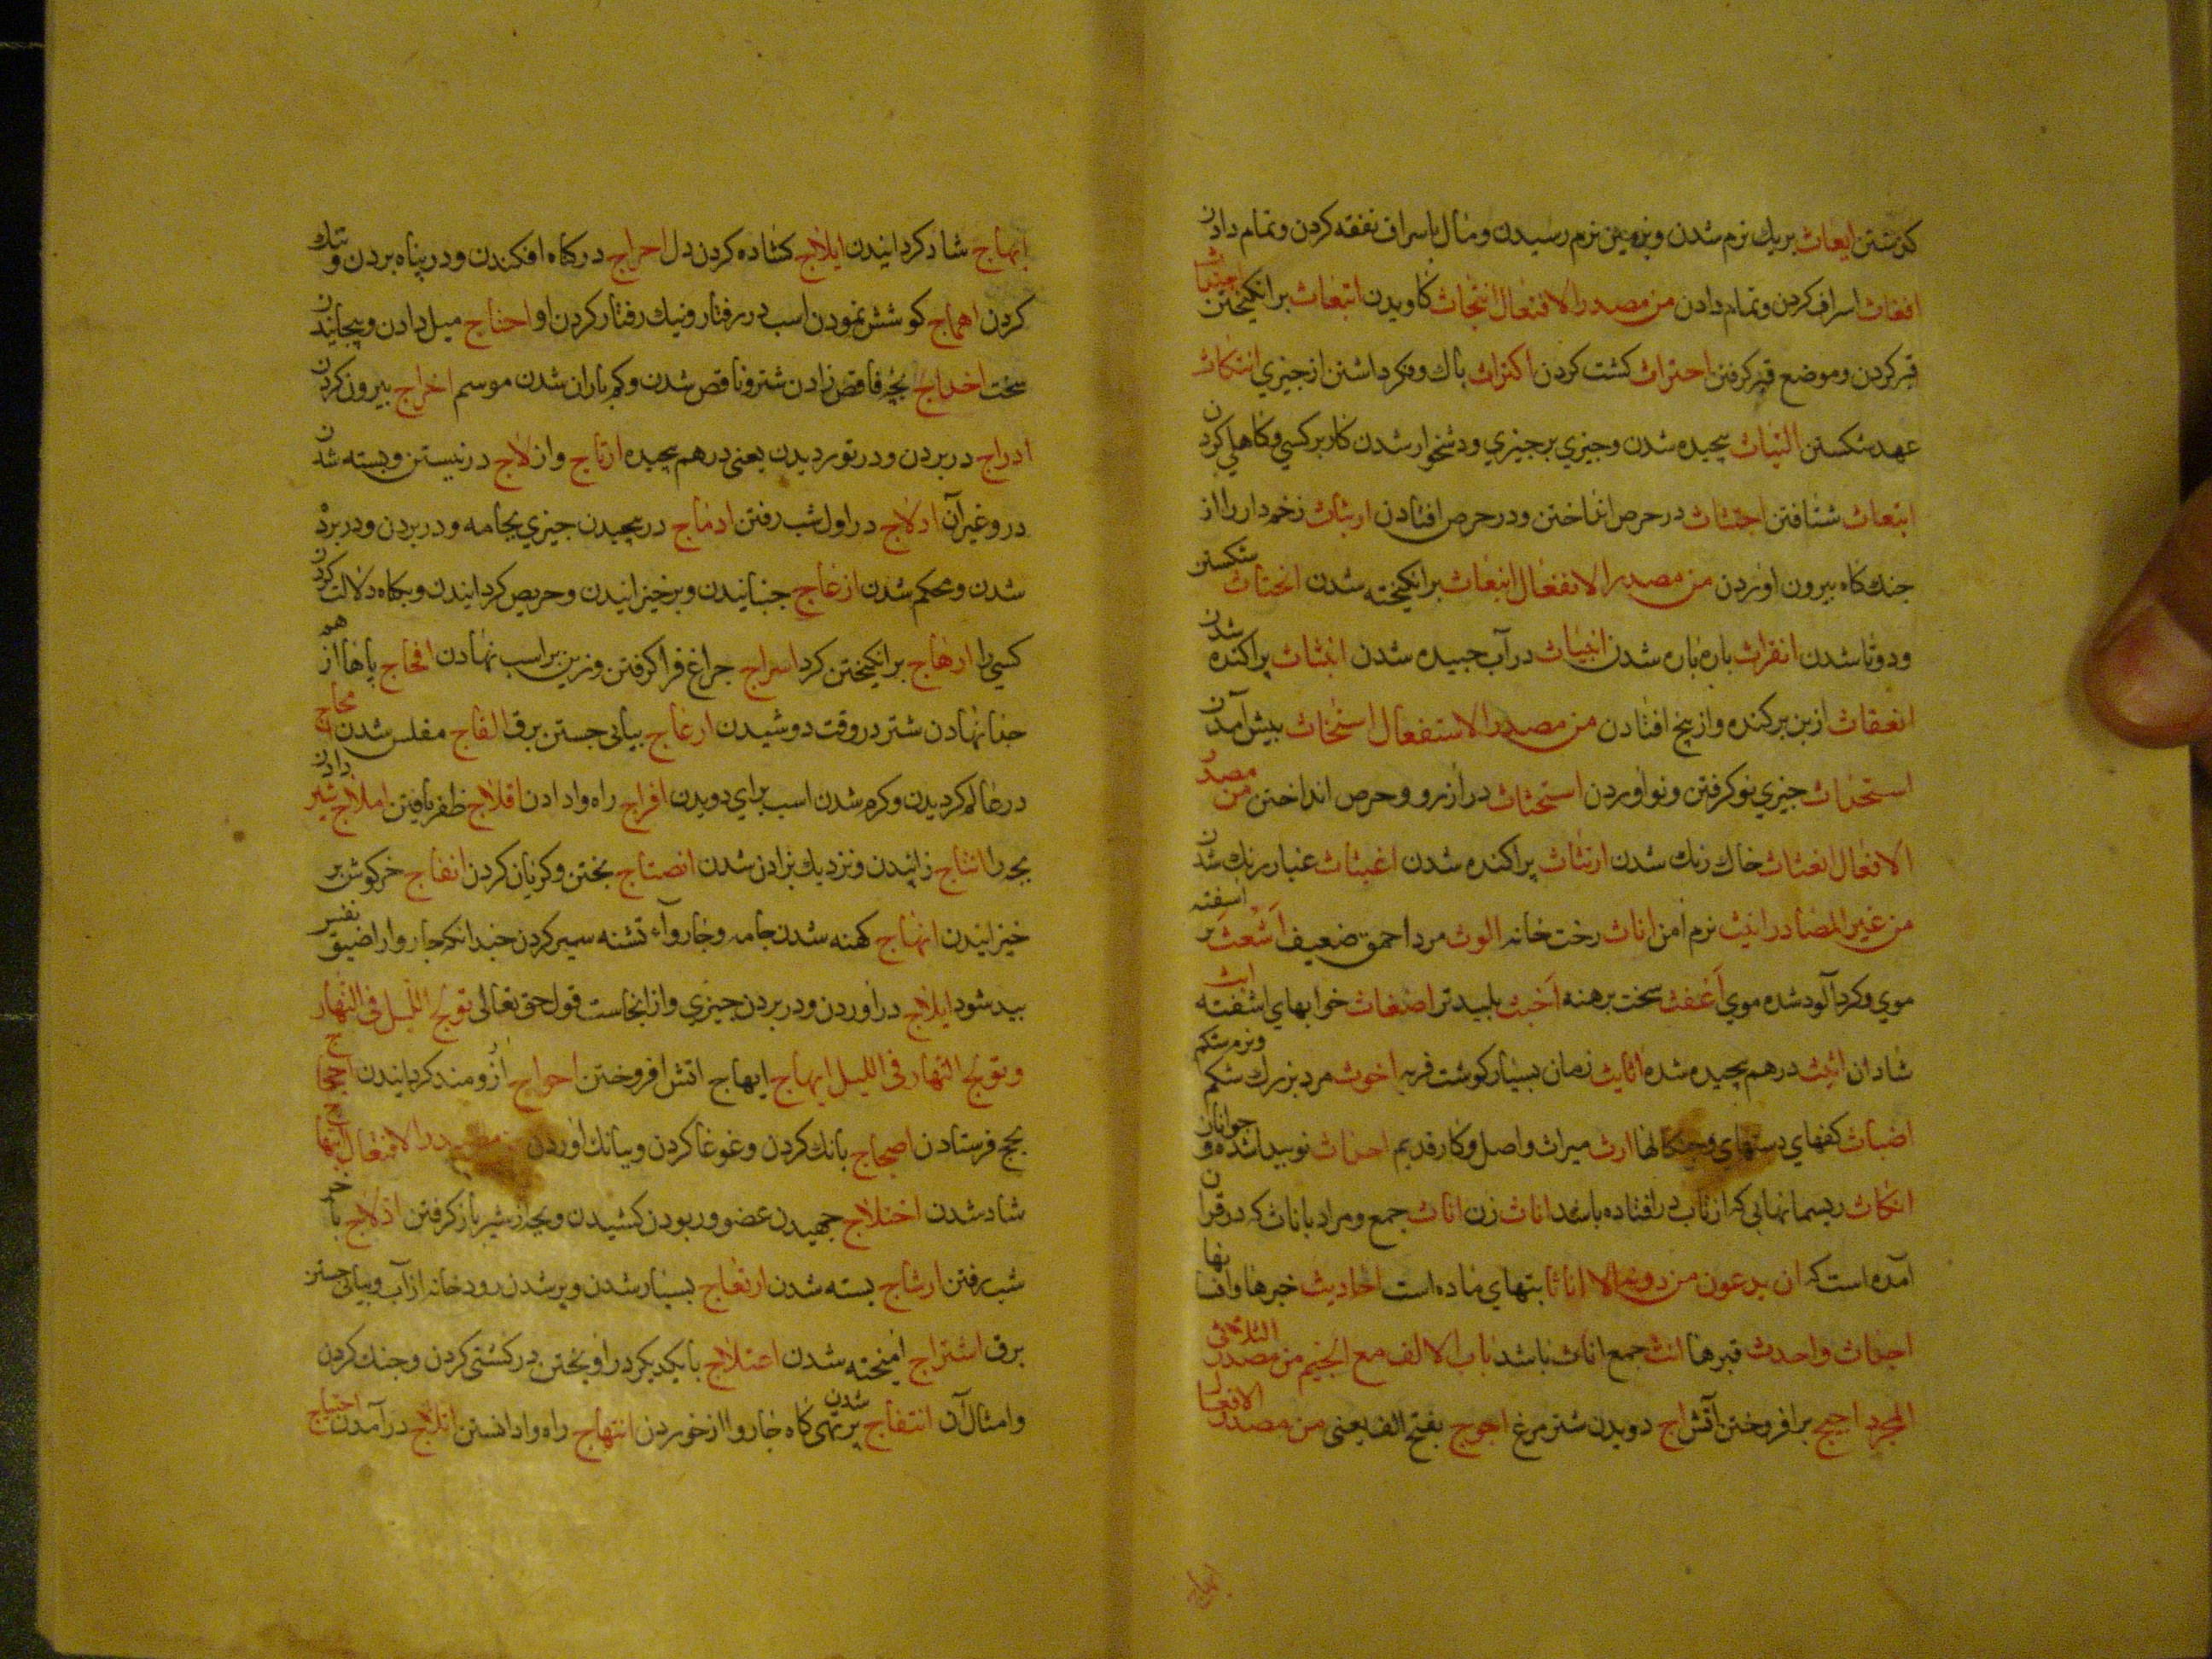 کوشتن ایعاث بریك نرم شدن وبزمین نرم رسیدن ومال باسراف نفقه کردن وتمام دادن
افعاث اسراف کردن وتمام دادن من مصدر الافتعال انتجاث کاویدن ابتعاث برانکیختن اجتداث
قبر کردن وموضع قبر کرفتن احتراث کشت کردن اکتراث باك وفکر داشتن از جیزي انتکاث
عهد شکستن التیاث پیچیده شدن وجیزي بر جیزي ودشخوار شدن کار بر کسي وکاهلي کردن
ابتعاث شتافتن احتثاث در حرص انداختن ودر حرص افتادن ارتثاث زخم دار را از
جنك کاه بیرون اوردن من مصدر الانفعال انبعاث برانکیخته شدن انخناث شکستن
ودوتا شدن انفراث باره باره شدن انمیاث در آب جبیده شدن انبثاث پراکنده شدن
انعقاث از بن برکنده واز بیخ افتادن من مصدر الاستفعال بیش آمدن
استحداث جیزي نو کرفتن ونو اوردن استحثاث در ارزو وحرص انداختن من مصدر
الافعال اغثاث خاك رنك شدن ارثاث پراکنده شدن اغبثاث غبار رنك شدن
من غیر المصادر انیث نرم آمن اثاث رخت خانه الوث مرد احمق ضعیف اشعث بر اسفته
موي وکرد آلود شده موي اغفث سخت برهنه اخبث بلیدتر اضغاث خوابهاي اشفته
شادان اثیث درهم پیچیده شده اثایث زمان بسیار کوشت فربه اخوث مرد بزرك شکم ونرم شکم
اضباث کفهاي دستهاي وجنکالها ارث میراث واصل وکار قدیم احداث نو بیدا شده و جوانان
انکاث ریسمانهایي که از تاب در افتاده باشد اناث زن اناث جمع ومراد باناث که در قران
آمده است که ان یدعون من دونه الا اناثا بتهاي ماده است احادیث خبرها وافسانها
اجداث واحدث قبرها انث جمع اناث باشد باب الالف مع الجیم من مصدر الثلاثي
المجرد اجیج برافروختن آتش اج دویدن شتر مرغ اجوج بفتح الف یعنی من مصدر الافعال
ابهاج شاد کردانیدن ایلاج کشاده کردن دل احراج در کاه افکندن ودر پناه بردن وتنك
کردن اهماج کوشش نمودن اسب در رفتار ونیك رفتار کردن او احناج میل دادن وپیچانیدن
سخت اخداج بچه ناقص زادن شتر وناقص شدن وکم باران شدن موسم اخراج بیرون کردن
ادراج در بردن ودر نوردیدن یعنی درهم پیچیده ارتاج وازلاج در نیستن وبسته شدن
در وغیر آن ادلاج در اول شب رفتن ادماج در پیچیدن جیزي بجامه ودر بردن ودر برده
شدن ومحکم شدن ازعاج جنبانیدن وبرخیزانیدن وحریص کردانیدن وبکاه دلالت کردن
کسي را ارهاج برانکیختن کرد اسراج جراغ فرا کرفتن وزین بر اسب نهادن افحاج پاها از هم
جدا نهادن شتر در وقت دوشیدن ارعاج بیاپي جستن برق الفاج مفلس شدن
در عالم کردیدن وکرم شدن اسب براي دویدن افراج راه وادادن افلاج ظفر یافتن املاج شیر دادن
بچه را انتاج زاییدن ونزدیك بزادن شدن انضاج بختن وکریان کردن انفاج خرکوش بر
خیزانیدن انهاج کهنه شدن جامه وجاروآء تشنه سیر کردن جندانکه جاروا را ضیق نفس
بید شود ایلاج در آوردن ودر بردن جیزي واز اینجاست قول حق تعالی تولج اللیل فی النهار
وتولج النهار فی اللیل ابهاج ایهاج اتش افروختن احواج آرزومند کردانیدن احجاج
بحج فرستادن اضجاج بانك کردن وغوغا کردن وببانك اوردن من مصدر الافتعال ابتهاج
شاد شدن اختلاج جهیدن عضو وربودن کشیدن وبچه از شیر باز کرفتن ادلاج باخر
شب رفتن ارتتاج بسته شدن ارتعاج بسیار شدن وپر شدن رودخانه از آب وبیاپي جستن
برق امتزاج امیخته شدن اعتلاج با یکدیکر در اویختن در کشتی کردن وجنك کردن
وامثال آن انتفاج پر شدن تهی کاه جاروا از خوردن انتهاج راه وادانستن اتلاج در آمدن احتیاج